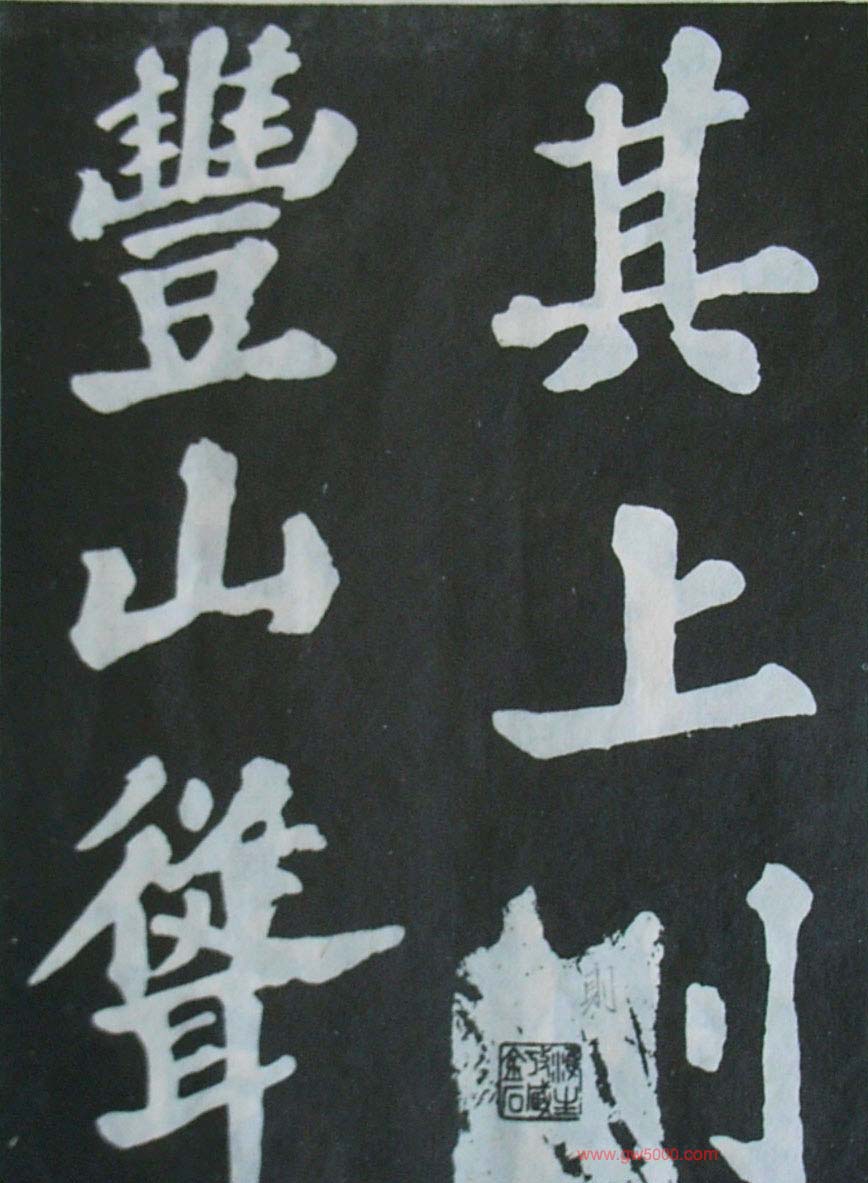 其上則
豐山聳
則
金石
www.gw5000.com